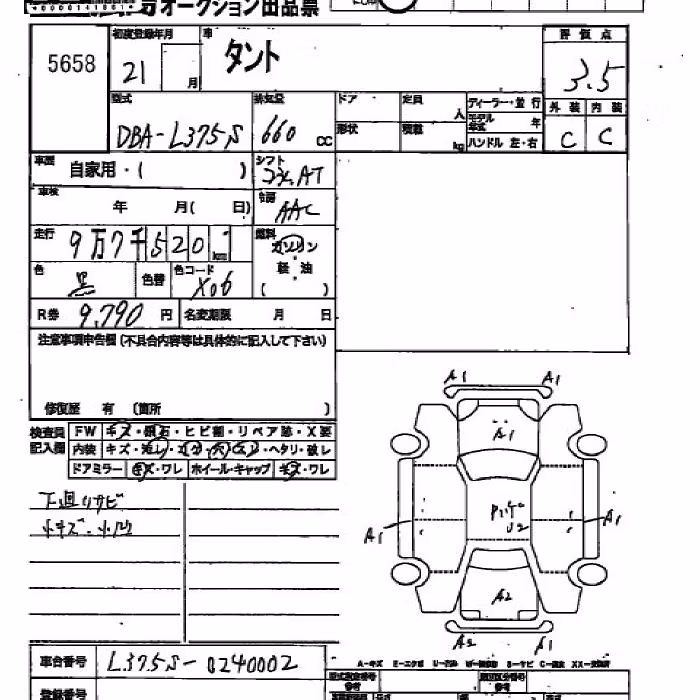 オークション出品票
5658
初度登録年月
21
月
車
タント
評価点
3.5
型式
DBA-L375S
排気量
660 cc
ドア
定員
人
ディーラー・並行
モデル年式
年
形状
積載
kg
ハンドル 左・右
外装
内装
C
C
車歴
自家用・(　)
シフト
コラAT
車検
年　月(　日)
冷房
AAC
走行
9万7千520
km
燃料
ガソリン
・
軽油
(　)
色
黒
色替
色コード
X06
R券 9,790 円
名変期限　月　日
注意事項申告欄 (不具合内容等は具体的に記入して下さい)
修復歴　有　(箇所　)
検査員記入欄
FW
キズ・飛石・ヒビ割・リペア跡・X要
内装
・ヘタリ・破レ
ドアミラー
キズ・ワレ
ホイール・キャップ
キズ・ワレ
下廻りサビ
小キズ・小凹
A1
A1
A1
U2
A1
A1
A2
A2
A1
車台番号
L375S-0240002
登録番号